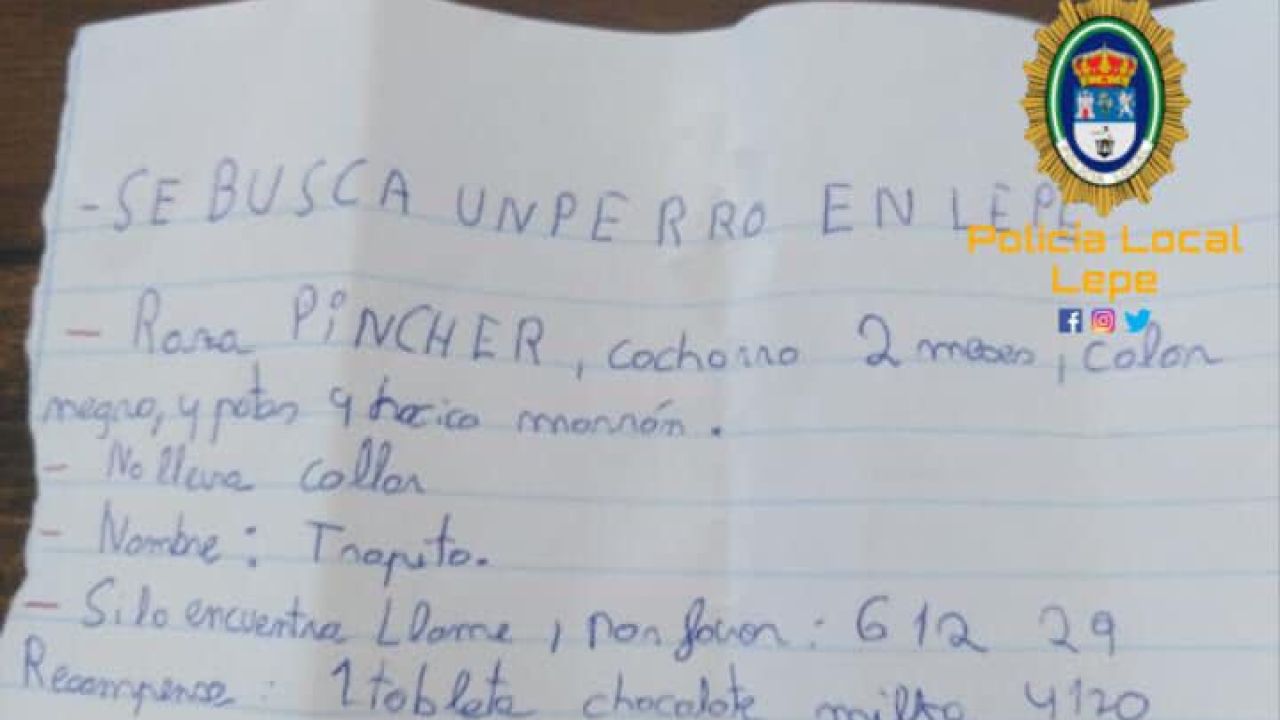 - SE BUSCA UN PERRO EN LEPE
Policía Local
Lepe
- Raza PiNCHER, cachorro 2 meses, color
negro, y patas y hocico marrón.
- No lleva collar
- Nombre: Trapito.
- Si lo encuentra Llame, por favor: 612 29
Recompensa: 1 tableta chocolate milka y 120